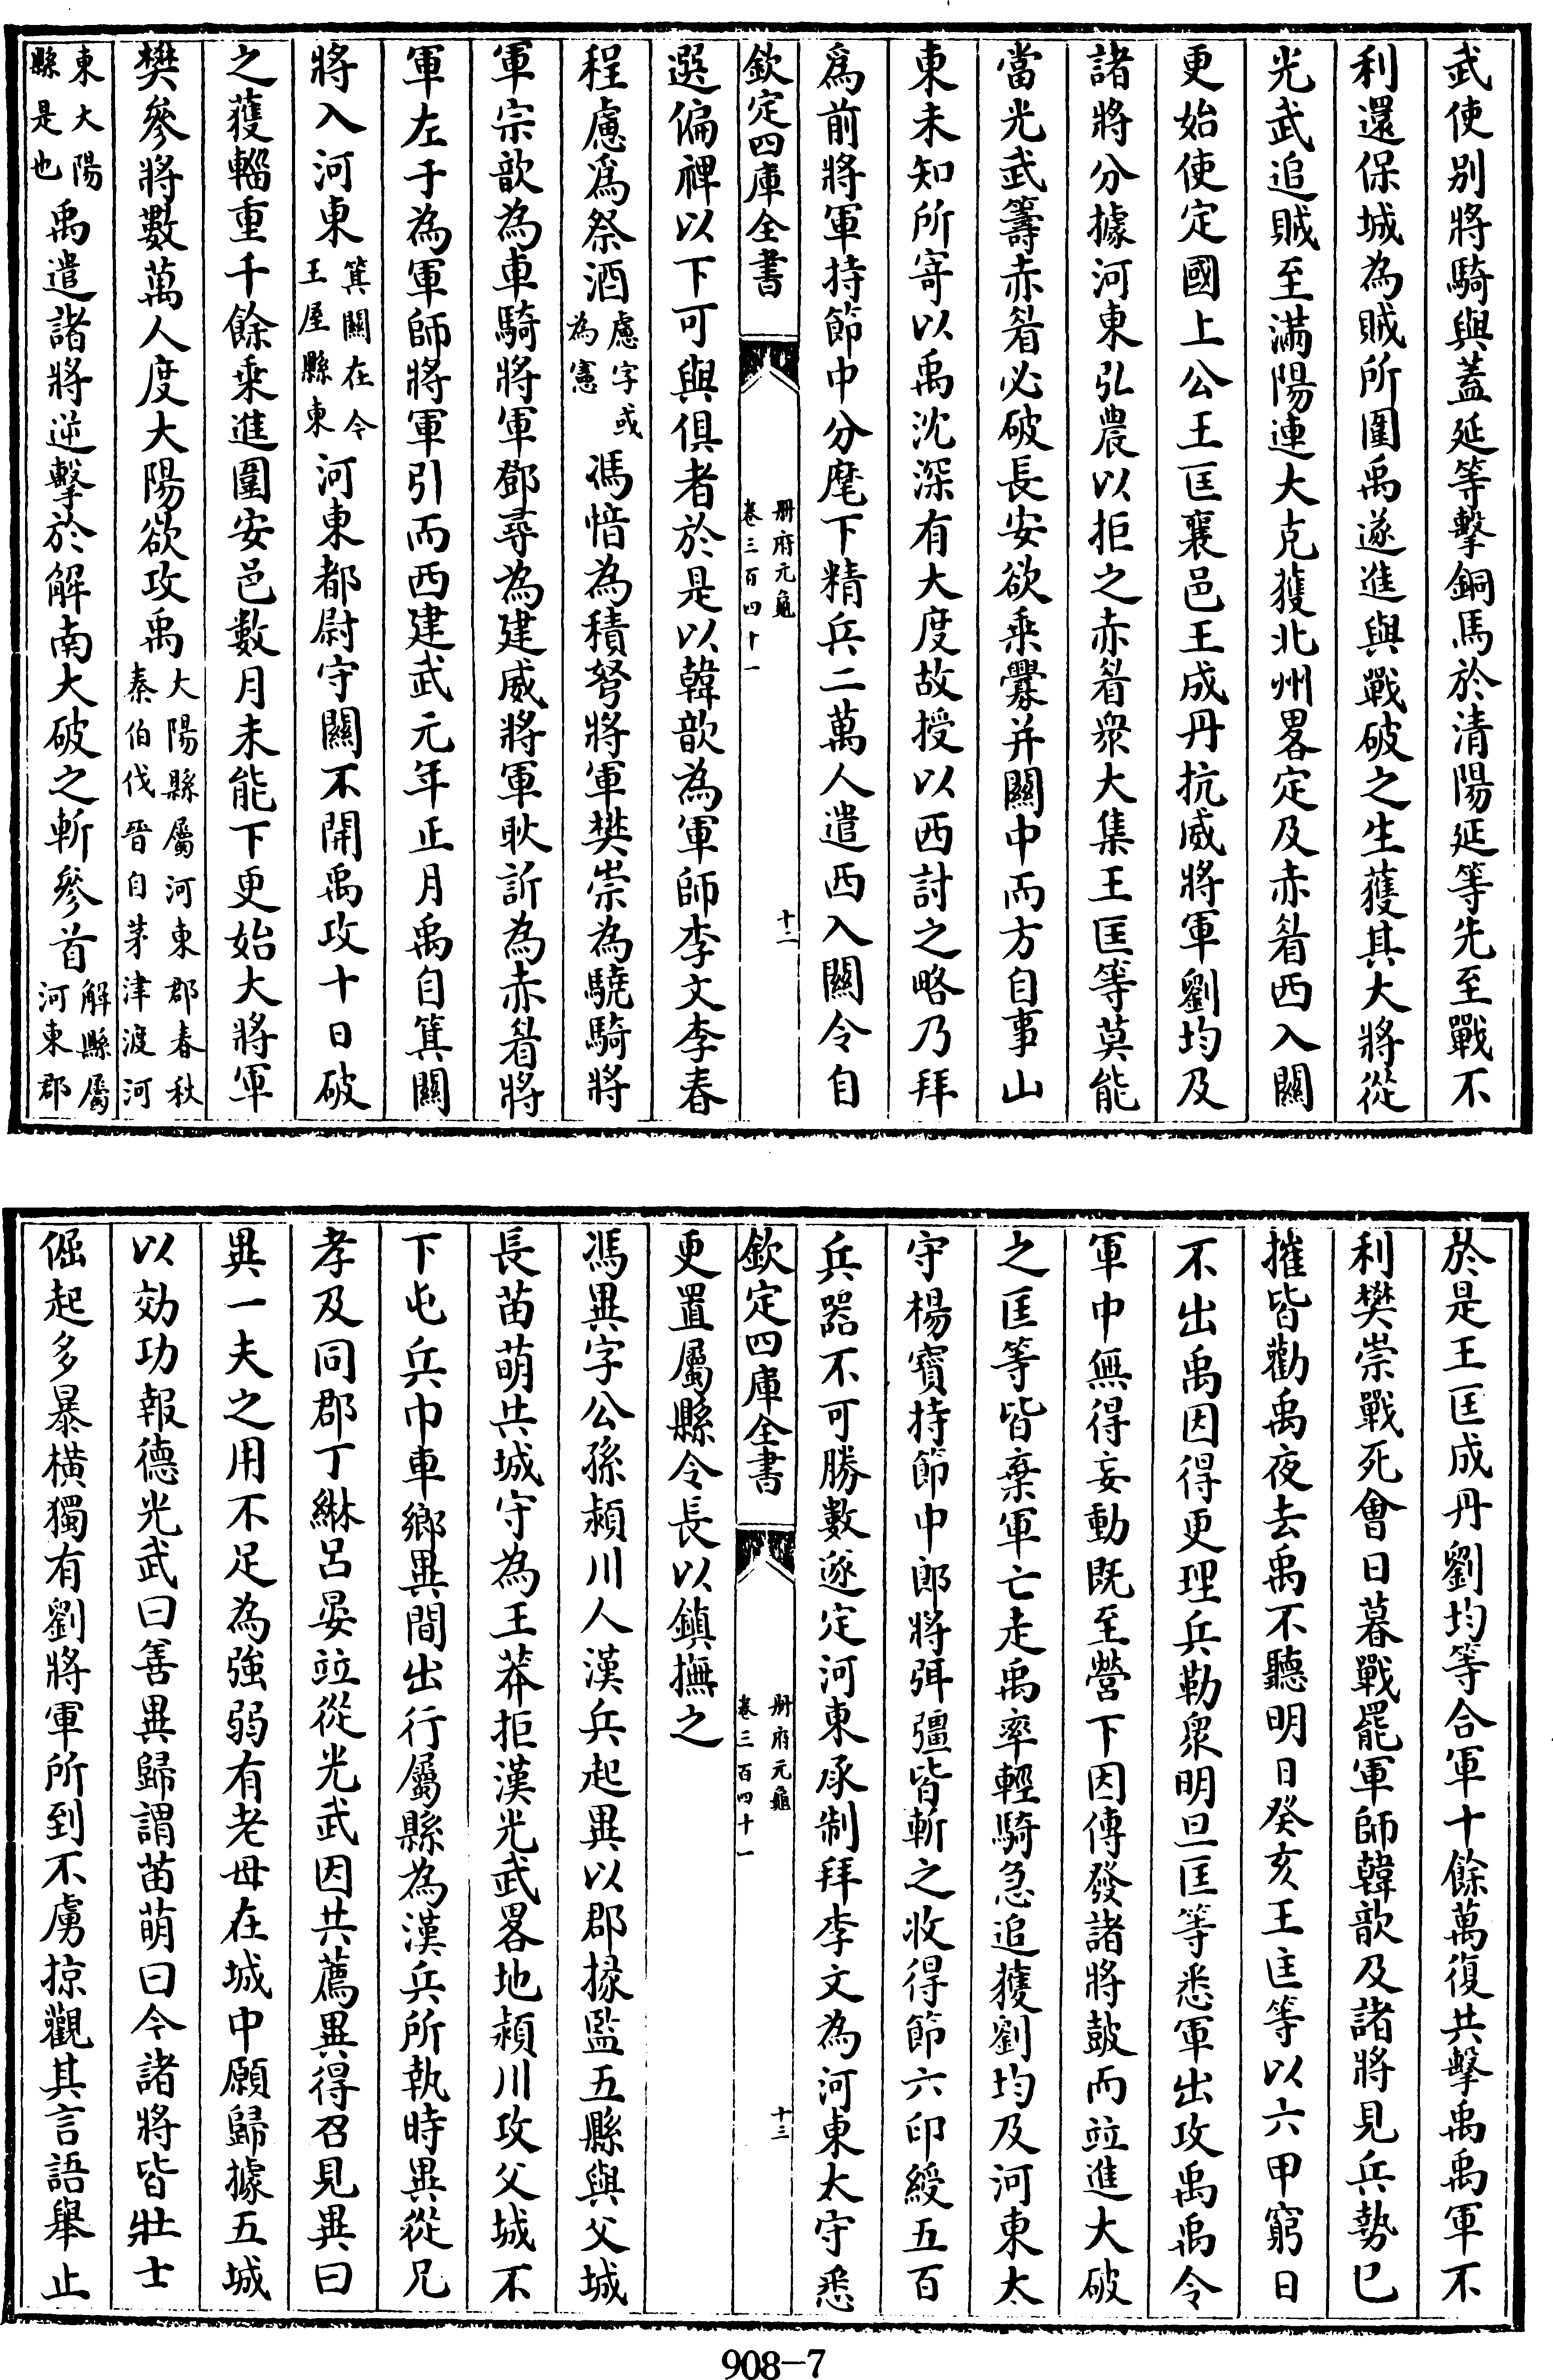 武使别將騎與蓋延等擊銅馬於清陽延等先至戰不
利還保城為賊所圍禹遂進與戰破之生獲其大將從
光武追賊至滿陽連大克獲北州畧定及赤眉西入關
更始使定國上公王匡襄邑王成丹抗威將軍劉均及
諸將分據河東弘農以拒之赤眉衆大集王匡等莫能
當光武籌赤眉必破長安欲乗釁并關中而方自事山
東未知所寄以禹沈深有大度故授以西討之略乃拜
爲前將軍持節中分麾下精兵二萬人遣西入關令自
欽定四庫全書 冊府元龜 卷三百四十一 十二
選偏裨以下可與俱者於是以韓歆為軍師李文李春
程慮爲祭酒慮字或為憲馮愔為積弩將軍樊崇為驍騎將
軍宗歆為車騎將軍鄧尋為建威將軍耿訢為赤眉將
軍左于為軍師將軍引而西建武元年正月禹自箕關
將入河東箕關在今王屋縣東河東都尉守關不開禹攻十日破
之獲輜重千餘乗進圍安邑數月未能下更始大將軍
樊參將數萬人度大陽欲攻禹大陽縣屬河東郡春秋秦伯伐晉自茅津渡河
東大陽縣是也禹遣諸將逆擊於解南大破之斬參首解縣屬河東郡
於是王匡成丹劉均等合軍十餘萬復共擊禹禹軍不
利樊崇戰死會日暮戰罷軍師韓歆及諸將見兵勢已
摧皆勸禹夜去禹不聽明日癸亥王匡等以六甲窮日
不出禹因得更理兵勒衆明旦匡等悉軍出攻禹禹令
軍中無得妄動既至營下因傳發諸將鼓而竝進大破
之匡等皆棄軍亡走禹率輕騎急追獲劉均及河東太
守楊寳持節中郎將弭彊皆斬之收得節六印綬五百
兵器不可勝數遂定河東承制拜李文為河東太守悉
欽定四庫全書 冊府元龜 卷三百四十一 十三
更置屬縣令長以鎮撫之
馮異字公孫潁川人漢兵起異以郡掾監五縣與父城
長苗萌共城守為王莽拒漢光武畧地潁川攻父城不
下屯兵巾車鄉異間出行屬縣為漢兵所執時異從兄
孝及同郡丁綝呂晏竝從光武因共薦異得召見異曰
異一夫之用不足為強弱有老母在城中願歸據五城
以効功報德光武曰善異歸謂苗萌曰今諸將皆壯士
倔起多暴橫獨有劉將軍所到不虜掠觀其言語舉止
908-7